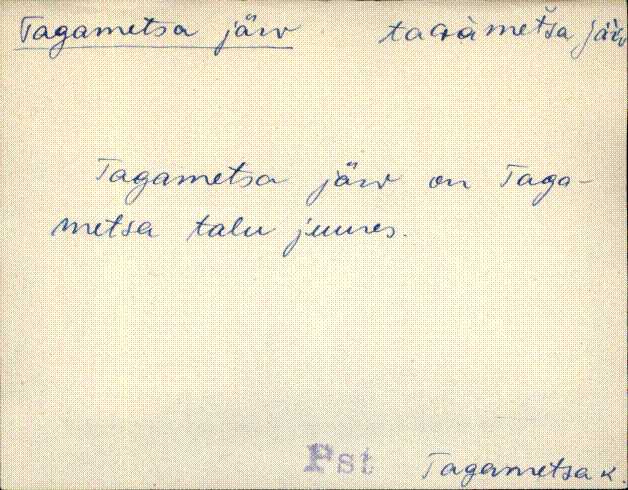 Tagametsa järv taGàmeťsa järv
Tagametsa järv on Taga-
metsa talu juures.
Pst Tagametsa k.